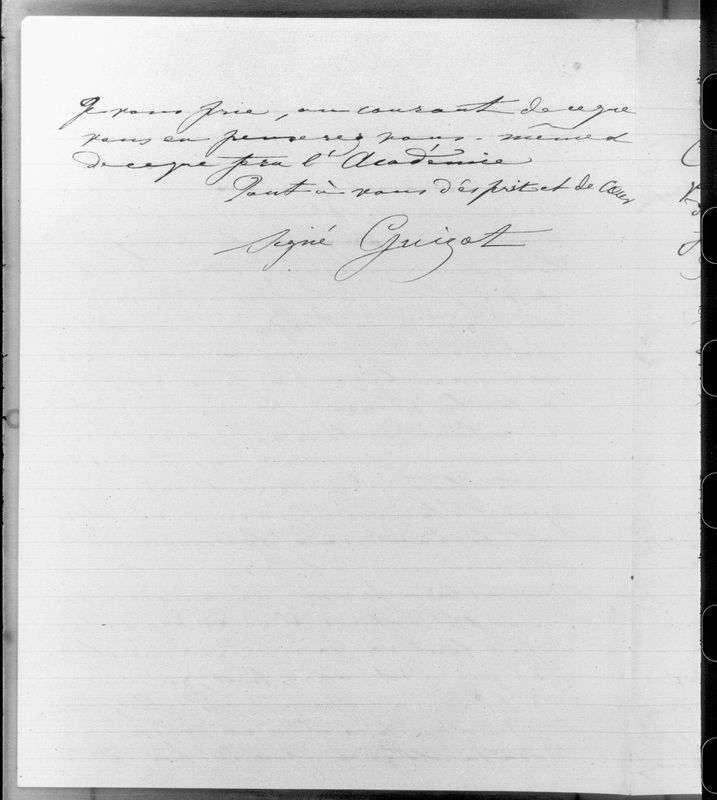 Je vous prie, au courant de ce que
vous en penserez vous-même &
de ce que fera l'Académie
Tout à vous d'esprit et de Cœur
signé Guizot